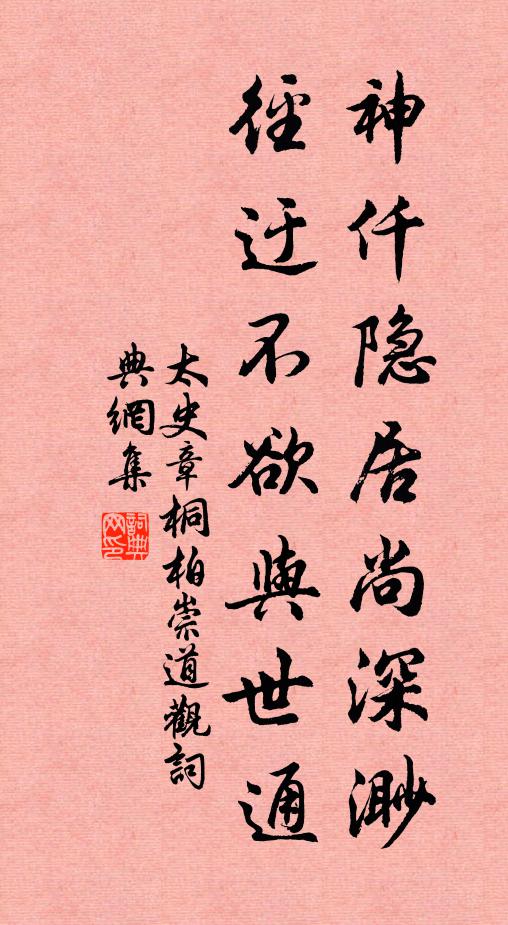 神仟隐居尚深渺
徑迂不欲與世通
太史章桐柏崇道觀詞
典網集
詞典
网印